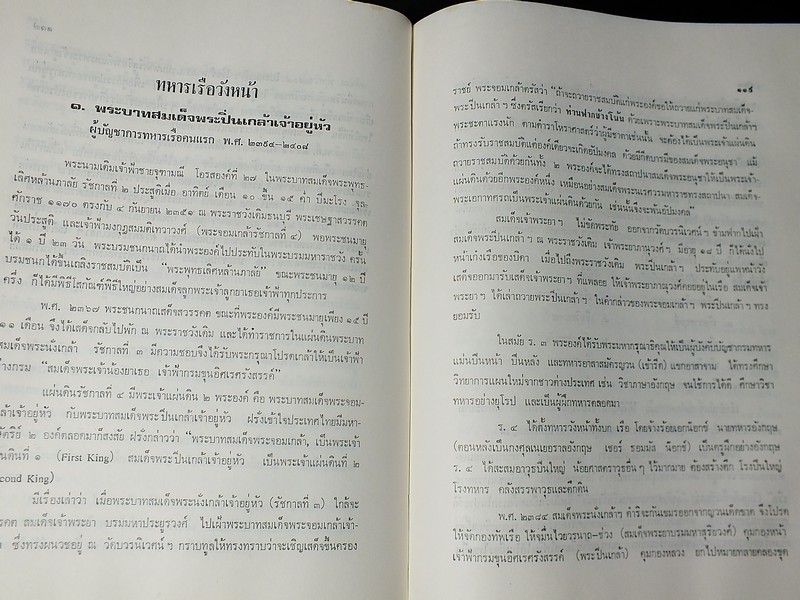 ทหารเรือวังหน้า
๑. พระบาทสมเด็จพระปิ่นเกล้าเจ้าอยู่หัว
ผู้บัญชาการทหารเรือคนแรก พ.ศ. ๒๓๙๔-๒๔๐๘
พระนามเดิมเจ้าฟ้าชายจุฑามณี โอรสองค์ที่ ๒๗ ในพระบาทสมเด็จพระพุทธ-
เลิศหล้านภาลัย รัชกาลที่ ๒ ประสูติเมื่อ อาทิตย์ เดือน ๑๐ ขึ้น ๑๕ ค่ำ ปีมะโรง จุล-
ศักราช ๑๑๗๐ ตรงกับ ๔ กันยายน ๒๓๕๑ ณ พระราชวังเดิมธนบุรี พระเชษฐาสวรรคต
วันประสูติ และเจ้าฟ้ามงกุฎสมมติเทวาวงศ์ (พระจอมเกล้ารัชกาลที่ ๔) พอพระชนมายุ
ได้ ๑ ปี ๒๓ วัน พระบรมชนกนาถได้นำพระองค์ไปประทับในพระบรมมหาราชวัง ครั้น
บรมชนกได้ขึ้นเถลิงราชสมบัติเป็น "พระพุทธเลิศหล้านภาลัย" ขณะพระชนมายุ ๑๒ ปี
ครึ่ง ก็ได้มีพิธีโสกัณฑ์พิธีใหญ่อย่างสมเด็จลูกพระเจ้าลูกยาเธอเจ้าฟ้าทุกประการ
พ.ศ. ๒๓๖๗ พระชนกนาถเสด็จสวรรคต ขณะที่พระองค์มีพระชนมายุเพียง ๑๕ ปี
๑๑ เดือน จึงได้เสด็จกลับไปพัก ณ พระราชวังเดิม และได้ทำราชการในแผ่นดินพระบาท
สมเด็จพระนั่งเกล้า รัชกาลที่ ๓ มีความชอบจึงได้รับพระกรุณาโปรดเกล้าให้เป็นเจ้าฟ้า
างกรม "สมเด็จพระเจ้าน้องยาเธอ เจ้าฟ้ากรมขุนอิศเรศรังสรรค์"
แผ่นดินรัชกาลที่ ๔ มีพระเจ้าแผ่นดิน ๒ พระองค์ คือ พระบาทสมเด็จพระจอม-
ล้าเจ้าอยู่หัว กับพระบาทสมเด็จพระปิ่นเกล้าเจ้าอยู่หัว ฝรั่งเข้าใจประเทศไทยมีมหา-
ตริย์ ๒ องค์ตลอดมาก็สงสัย ฝรั่งกล่าวว่า "พระบาทสมเด็จพระจอมเกล้า, เป็นพระเจ้า
นดินที่ ๑ (First King) สมเด็จพระปิ่นเกล้าเจ้าอยู่หัว เป็นพระเจ้าแผ่นดินที่ ๒
cond King)
มีเรื่องเล่าว่า เมื่อพระบาทสมเด็จพระนั่งเกล้าเจ้าอยู่หัว (รัชกาลที่ ๓) ใกล้จะ
รคต สมเด็จเจ้าพระยา บรมมหาประยูรวงศ์ ไปเฝ้าพระบาทสมเด็จพระจอมเกล้าเจ้า-
ซึ่งทรงผนวชอยู่ ณ วัดบวรนิเวศน์ฯ กราบทูลให้ทรงทราบว่าจะเชิญเสด็จขึ้นครอง
๑๑๙
ราชย์ พระจอมเกล้าตรัสว่า "ถ้าจะถวายราชสมบัติแก่พระองค์ขอให้ถวายแก่พระบาทสมเด็จ-
พระปิ่นเกล้าฯ ซึ่งตรัสเรียกว่า ท่านฟากข้างโน้น ด้วยเพราะพระบาทสมเด็จพระปิ่นเกล้าฯ
พระชะตาแรงนัก ตามตำราโหราศาสตร์ว่าผู้มีชาตาเช่นนั้น จะต้องได้เป็นพระเจ้าแผ่นดิน
ถ้าทรงรับราชสมบัติแต่องค์เดียวจะเกิดอัปมงคล ด้วยมีกีดบารมีของสมเด็จพระอนุชา แม้
ถวายราชสมบัติด้วยกันทั้ง ๒ พระองค์จะได้ทรงสถาปนาสมเด็จพระอนุชาให้เป็นพระเจ้า-
แผ่นดินด้วยอีกพระองค์หนึ่ง เหมือนอย่างสมเด็จพระนเรศวรมหาราชทรงสถาปนา สมเด็จ-
พระเอกาทศรถเป็นพระเจ้าแผ่นดินด้วยกัน เช่นนั้นจึงจะพ้นอัปมงคล"
สมเด็จเจ้าพระยาฯ ไม่ขัดหทัย ออกจากวัดบวรนิเวศน์ฯ ข้ามฟากไปเฝ้า
สมเด็จพระปิ่นเกล้าฯ ณ พระราชวังเดิม เจ้าพระยาภาณุวงศ์ฯ มีอายุ ๑๘ ปี ก็ได้นั่งไป
หน้าเก๋งเรือของบิดา เมื่อไปถึงพระราชวังเดิม พระปิ่นเกล้าฯ ประทับอยู่แพหน้าวัง
เสด็จออกมารับเสด็จเจ้าพระยาฯ ที่แพลอย ให้เจ้าพระยาภาณุวงศ์คอยอยู่ในเรือ สมเด็จเจ้า
พระยาฯ ได้เล่าถวายพระปิ่นเกล้าฯ ในคำกล่าวของพระจอมเกล้าฯ พระปิ่นเกล้าฯ ทรง
ยอมรับ
ในสมัย ร. ๓ พระองค์ได้รับพระมหากรุณาธิคุณให้เป็นผู้บังคับบัญชากรมทหาร
แม่นปืนหน้า ปืนหลัง และทหารอาสาสมัครญวน (เข้ารีด) แขกอาสาจาม ได้ทรงศึกษา
วิทยาการแผนใหม่จากชาวต่างประเทศ เช่น วิชาภาษาอังกฤษ จนใช้การได้ดี ศึกษาวิชา
ทหารอย่างยุโรป และเป็นผู้ฝึกทหารตลอดมา
ร. ๔ ได้ตั้งทหารวังหน้าทั้งบก เรือ โดยจ้างร้อยเอกน๊อกซ์ นายทหารอังกฤษ
(ตอนหลังเป็นกงศุลเนเยอราลอังกฤษ เซอร์ ธอมมัส น๊อกซ์) เป็นครูฝึกอย่างอังกฤษ
ร. ๔ ได้สะสมอาวุธปืนใหญ่ น้อยศาสตราวุธอื่นๆ ไว้มากมาย ต้องสร้างตึก โรงปืนใหญ่
โรงทหาร คลังสรรพาวุธและตึกดิน
พ.ศ. ๒๓๘๔ สมเด็จพระนั่งเกล้าฯ ดำริจะกันเขมรออกจากญวนเด็ดขาด จึงโปรด
ให้จัดกองทัพเรือ ให้จมื่นไวยวรนาถ-ช่วง (สมเด็จพระยาบรมมหาสุริยวงศ์) คุมกองหน้า
เจ้าฟ้ากรมขุนอิศเรศรังสรรค์ (พระปิ่นเกล้า) คุมกองหลวง ยกไปหมายทลายคลองขุด